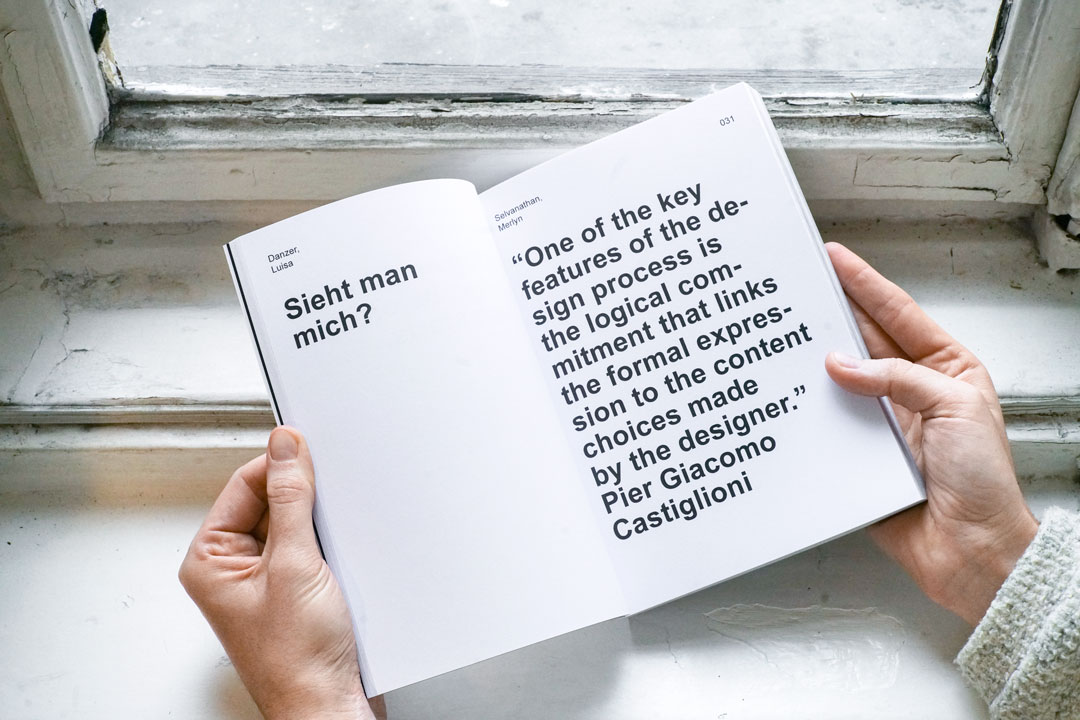 Danzer,
Luisa
Sieht man
mich?
031
Selvanathan,
Merlyn
“One of the key
features of the de-
sign process is
the logical com-
mitment that links
the formal expres-
sion to the content
choices made
by the designer.”
Pier Giacomo
Castiglioni